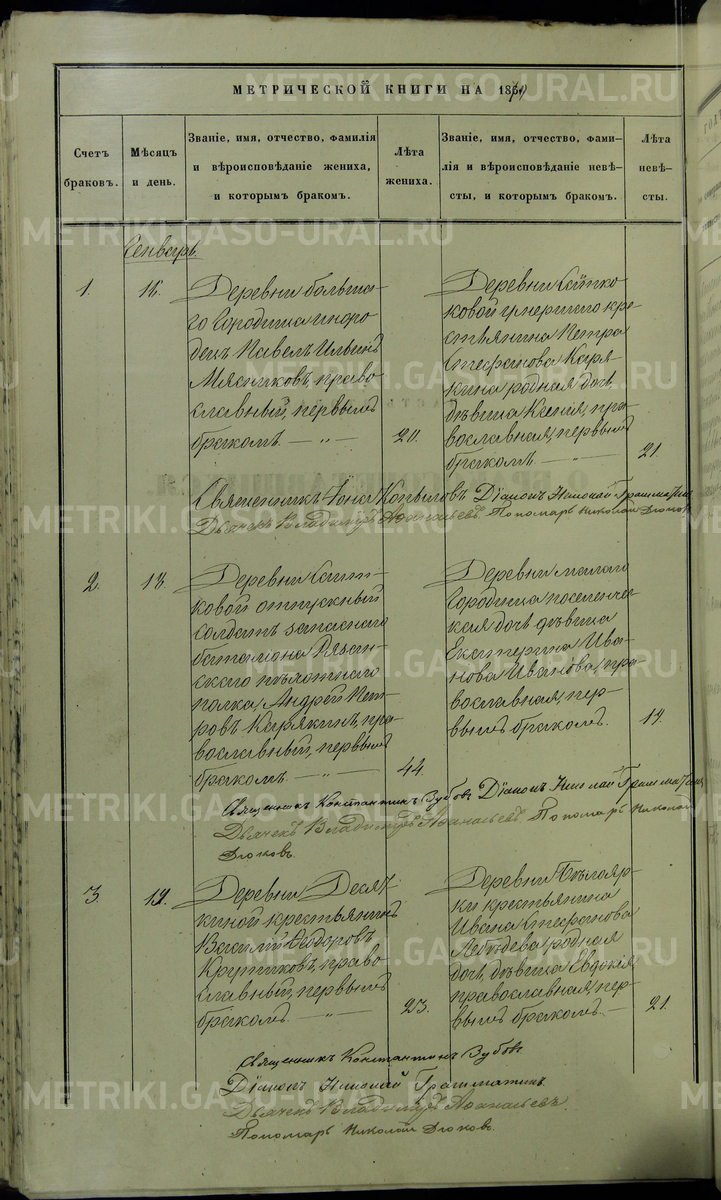 МЕТРИЧЕСКОЙ КНИГИ НА 18
Счетъ браковъ.
Мѣсяцъ и день.
Званіе, имя, отчество, фамилія
и вѣроисповѣданіе жениха,
и которымъ бракомъ.
Лѣта жениха.
Званіе, имя, отчество, фами-
лія и вѣроисповѣданіе невѣ-
сты, и которымъ бракомъ.
Лѣта невѣ-
сты.
Генварь.
1.
Деревни больша-
го Городища
Павелъ Ильинъ
Мясниковъ, право
славный, первымъ
бракомъ. — „ —
20.
Деревни
ковой кре
стьянина Петра
Стефанова Каря
кина родная дочь,
дѣвица Ксенія, пра
вославная, первымъ
бракомъ. — „ —
21.
Священникъ Іона Копыловъ Діаконъ Николай Грамматинъ
Дьячекъ Владиміръ Аѳанасьевъ. Пономарь Николай Дюковъ
2.
18.
Деревни
ковой отпускный
солдатъ запаснаго
баталіона Рязан-
скаго пѣхотнаго
полка, Андрей Пет-
ровъ Карякинъ, пра
вославный, первымъ
бракомъ. — „ —
44.
Деревни малаго
Городища поселенче
ская дочь дѣвица
Екатерина Ива-
нова Иванова, пра
вославная, пер-
вымъ бракомъ.
19.
Священникъ Константинъ Зубовъ Діаконъ Николай Грамматинъ
Дьячекъ Владиміръ Аѳанасьевъ. Пономарь Николай
Дюковъ.
3.
19.
Деревни Деся
киной крестьянинъ
Василій Ѳеодоровъ
Крутиковъ, право
славный, первымъ
бракомъ. — „ —
23.
Деревни
ки крестьянина
Ивана Стефанова
Лебедева родная
дочь, дѣвица Евдокія,
православная, пер-
вымъ бракомъ. —
21.
Священникъ Константинъ Зубовъ
Діаконъ Николай Грамматинъ.
Дьячекъ Владиміръ Аѳанасьевъ.
Пономарь Николай Дюковъ.
METRIKI.GASO-URAL.RU